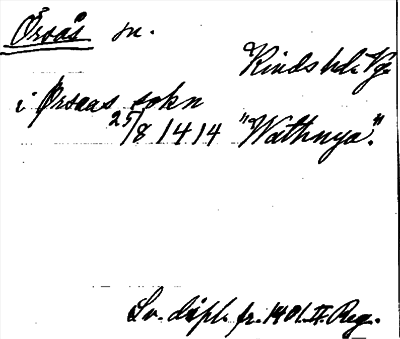 Örsås sn.
Kinds hd. Vg.
i Ørsaas sokn
25/8 1414 "Wathnya".
Sv. dipl. fr. 1401. II. Reg.